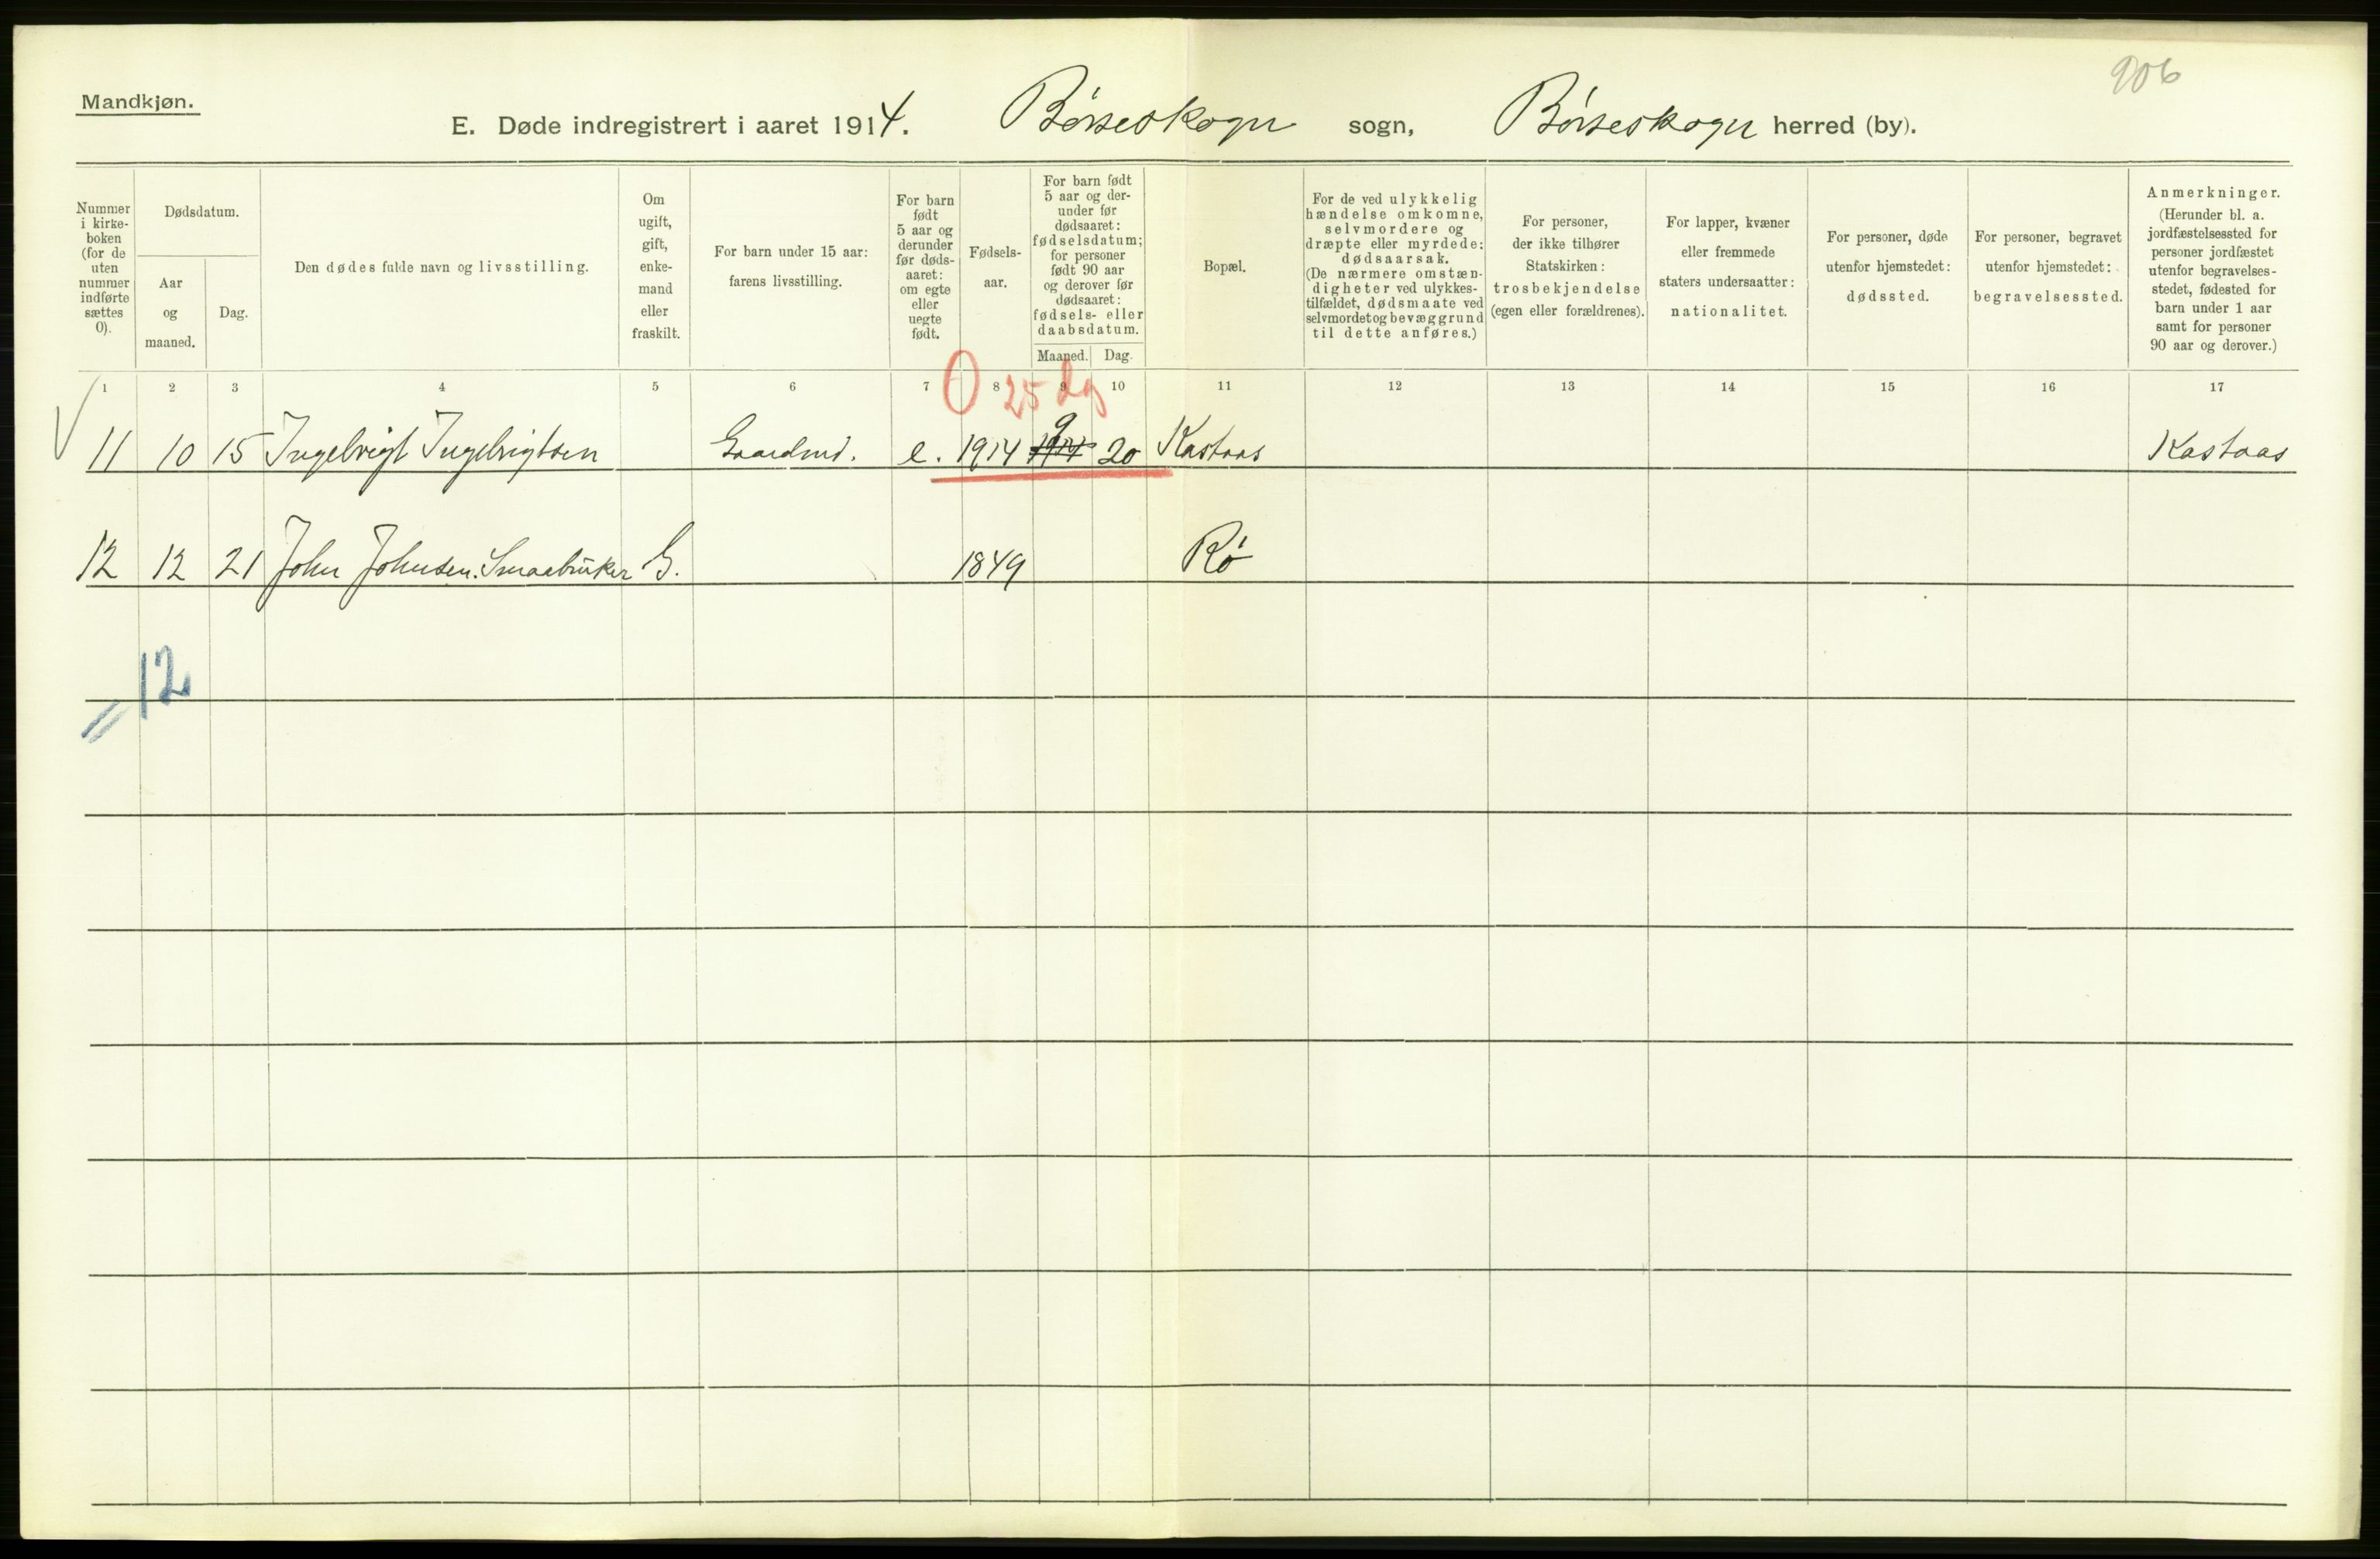 906
Mandkjøn.
E. Døde indregistrert i aaret 1914. Børseskogn sogn, Børseskogn herred (by).
Nummer i kirke-boken (for de uten nummer indførte sættes 0).
Dødsdatum.
Aar og maaned.
Dag.
Den dødes fulde navn og livsstilling.
Om ugift, gift, enke-mand eller fraskilt.
For barn under 15 aar: farens livsstilling.
For barn født 5 aar og derunder før døds-aaret: om egte eller uegte født.
Fødsels-aar.
For barn født 5 aar og der-under før dødsaaret: fødselsdatum; for personer født 90 aar og derover før dødsaaret: fødsels- eller daabsdatum.
Maaned. Dag.
Bopæl.
For de ved ulykkelig hændelse omkomne, selvmordere og dræpte eller myrdede: dødsaarsak. (De nærmere omstæn-digheter ved ulykkes-tilfældet, dødsmaate ved selvmordet og bevæggrund til dette anføres.)
For personer, der ikke tilhører Statskirken: trosbekjendelse (egen eller forældrenes).
For lapper, kvæner eller fremmede staters undersaatter: nationalitet.
For personer, døde utenfor hjemstedet: dødssted.
For personer, begravet utenfor hjemstedet: begravelsessted.
Anmerkninger. (Herunder bl. a. jordfæstelsessted for personer jordfæstet utenfor begravelses-stedet, fødested for barn under 1 aar samt for personer 90 aar og derover.)
1 2 3 4 5 6 7 8 9 10 11 12 13 14 15 16 17
0 25 dg
11 10 15 Ingebrigt Ingebrigtsen Gaardmd. e. 1914 9 20 Kastaas Kastaas
12 12 21 John Johnsen. Smaabruker G. 1849 Rø
12